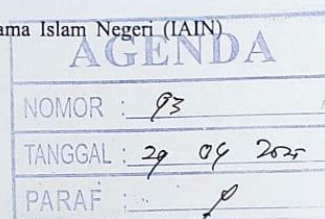 ama Islam Negeri (IAIN)
AGENDA
NOMOR : 93
TANGGAL : 29 04 2025
PARAF :